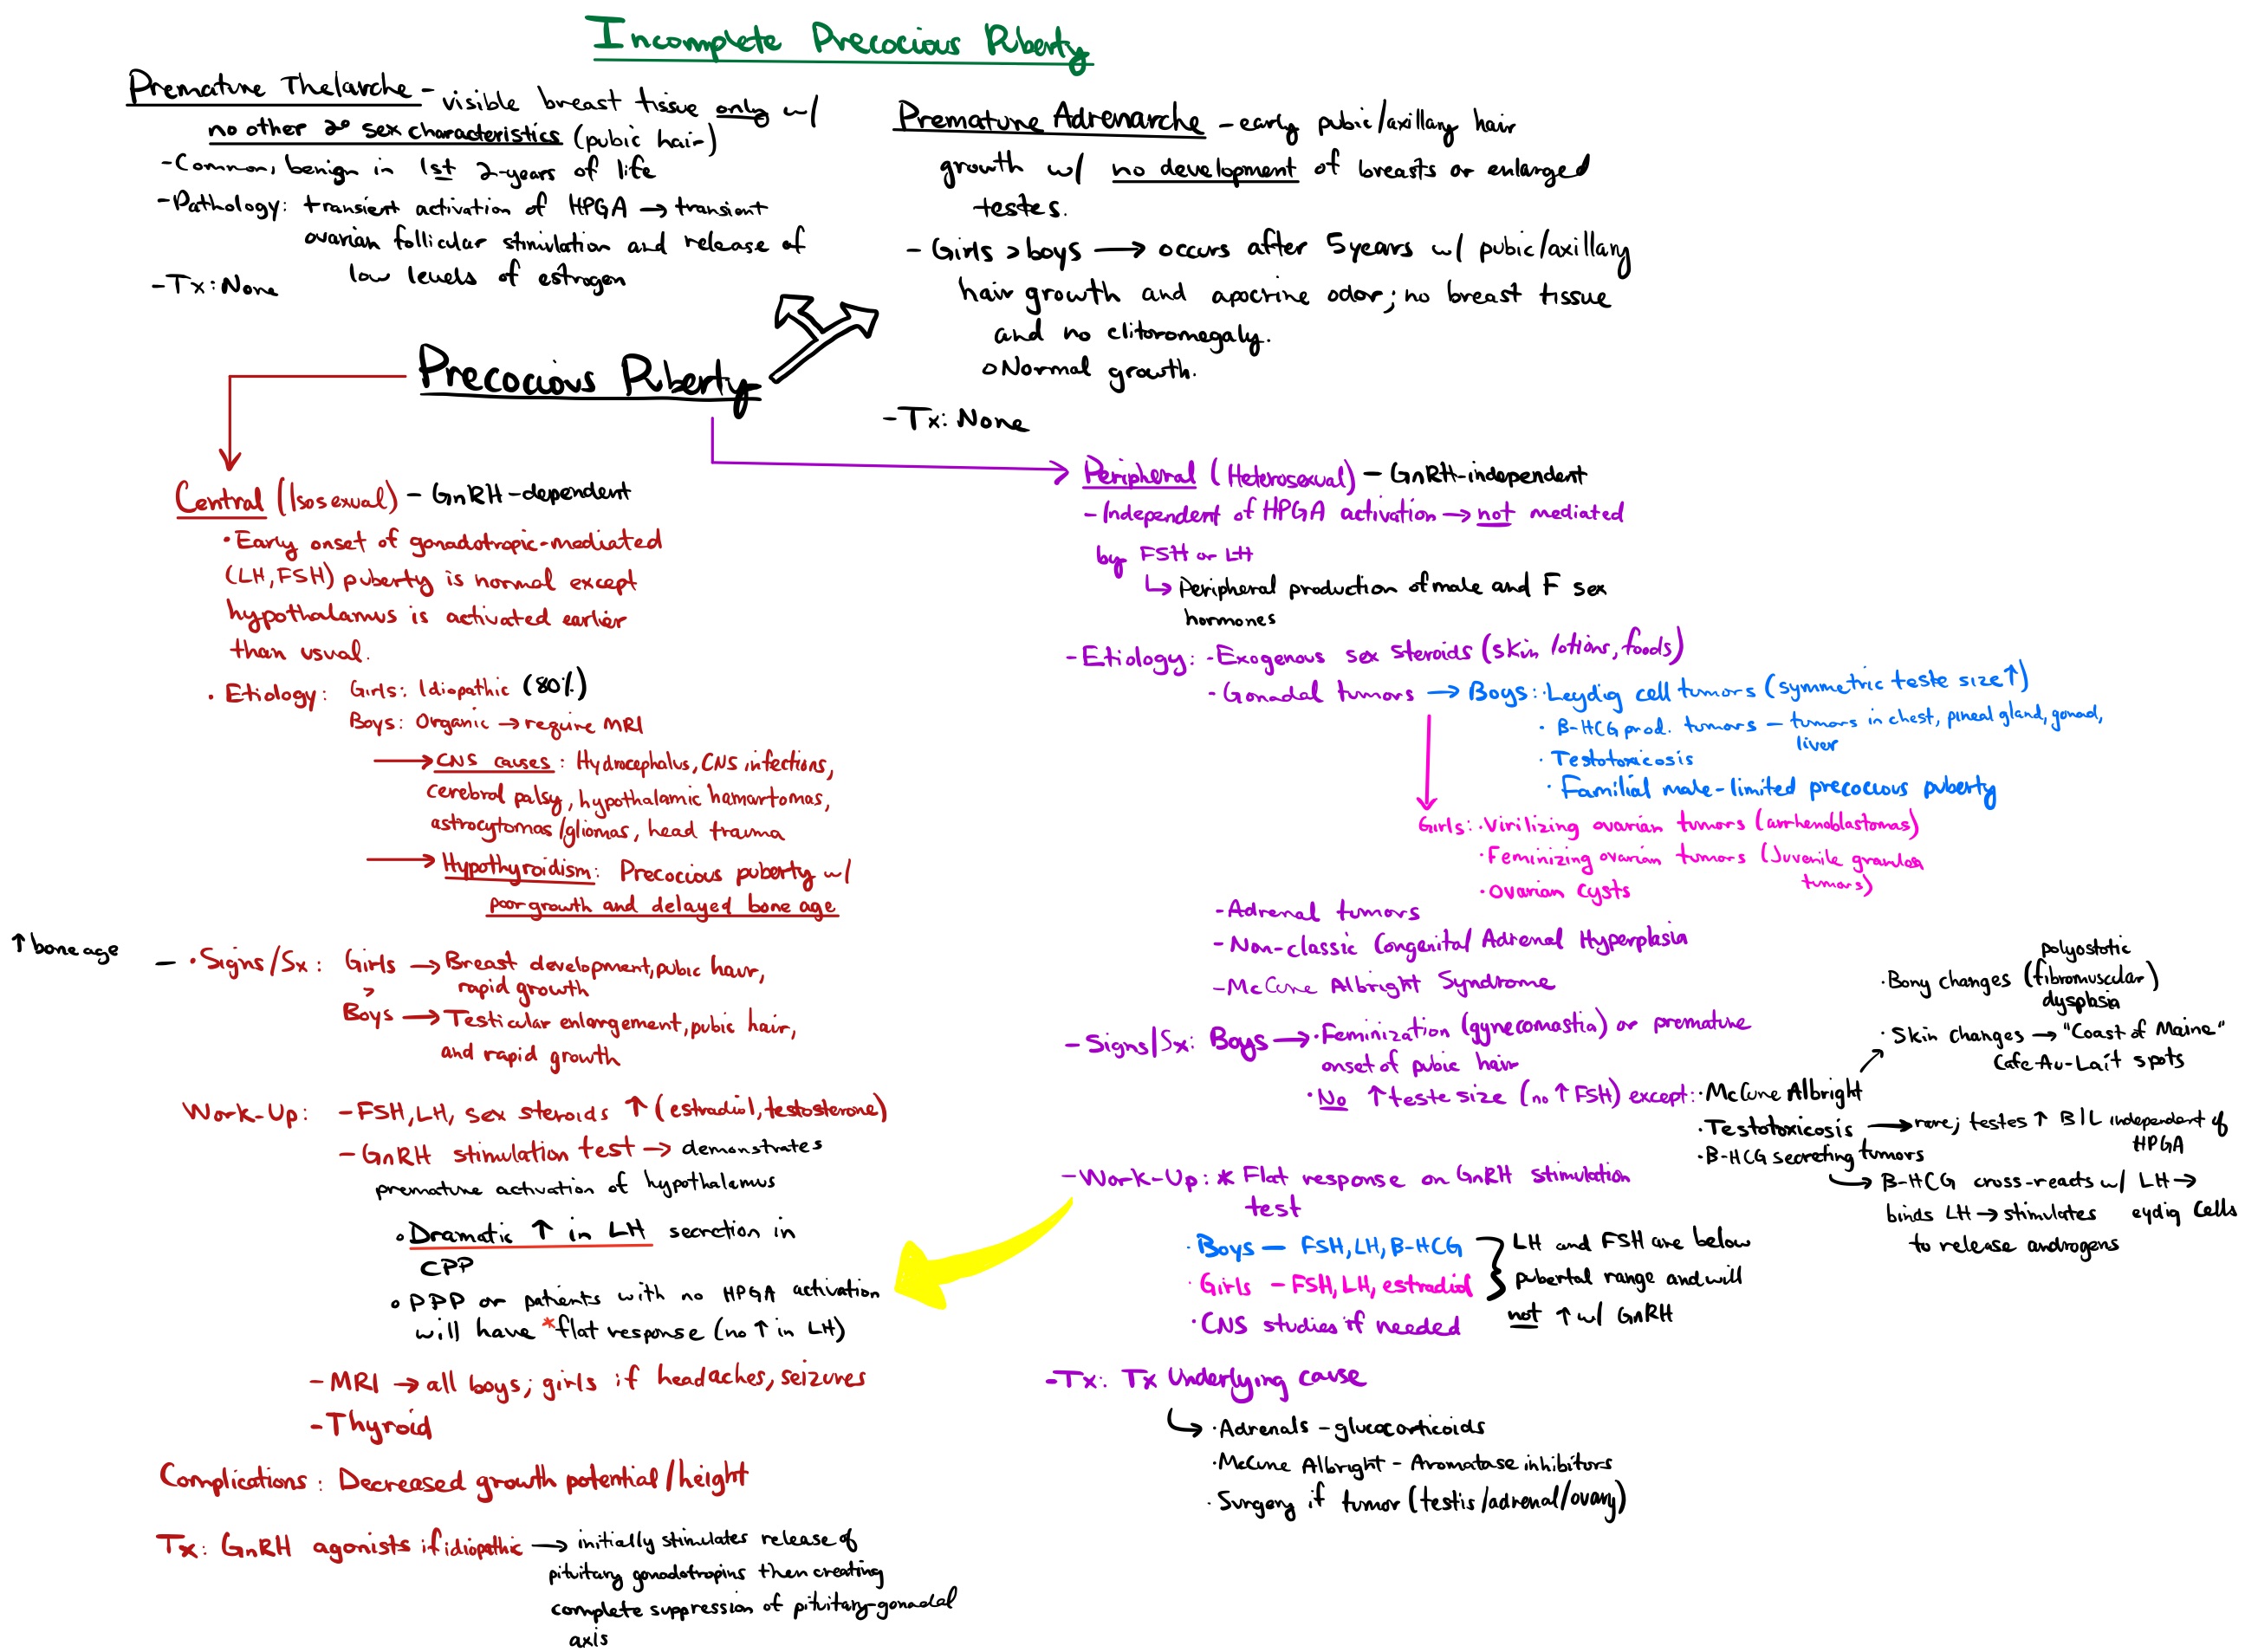 Incomplete Precocious Puberty
Premature Thelarche - visible breast tissue only w/
no other 2° sex characteristics (pubic hair)
- Common, benign in 1st 2-years of life
- Pathology: transient activation of HPGA → transient
ovarian follicular stimulation and release of
low levels of estrogen
- Tx: None
Premature Adrenarche - early pubic/axillary hair
growth w/ no development of breasts or enlarged
testes.
- Girls > boys → occurs after 5 years w/ pubic/axillary
hair growth and apocrine odor; no breast tissue
and no clitoromegaly.
○ Normal growth.
- Tx: None
Precocious Puberty
Central (Isosexual) - GnRH-dependent
• Early onset of gonadotropic-mediated
(LH, FSH) puberty is normal except
hypothalamus is activated earlier
than usual.
• Etiology: Girls: Idiopathic (80%)
Boys: Organic → require MRI
→ CNS causes: Hydrocephalus, CNS infections,
cerebral palsy, hypothalamic hamartomas,
astrocytomas/gliomas, head trauma
→ Hypothyroidism: Precocious puberty w/
poor growth and delayed bone age
↑ bone age
- • Signs/Sx: Girls → Breast development, pubic hair,
rapid growth
>
Boys → Testicular enlargement, pubic hair,
and rapid growth
Work-Up: - FSH, LH, sex steroids ↑ (estradiol, testosterone)
- GnRH stimulation test → demonstrates
premature activation of hypothalamus
○ Dramatic ↑ in LH secretion in
CPP
○ PPP or patients with no HPGA activation
will have *flat response (no ↑ in LH)
- MRI → all boys; girls if headaches, seizures
- Thyroid
Complications: Decreased growth potential/height
Tx: GnRH agonists if idiopathic → initially stimulates release of
pituitary gonadotropins then creating
complete suppression of pituitary-gonadal
axis
Peripheral (Heterosexual) - GnRH-independent
- Independent of HPGA activation → not mediated
by FSH or LH
↳ Peripheral production of male and F sex
hormones
- Etiology: - Exogenous sex steroids (skin lotions, foods)
- Gonadal tumors → Boys: • Leydig cell tumors (symmetric teste size ↑)
• B-HCG prod. tumors - tumors in chest, pineal gland, gonad,
liver
• Testotoxicosis
• Familial male-limited precocious puberty
Girls: • Virilizing ovarian tumors (arrhenoblastomas)
• Feminizing ovarian tumors (Juvenile granulosa
tumors)
• Ovarian cysts
- Adrenal tumors
- Non-classic Congenital Adrenal Hyperplasia
- McCune Albright Syndrome
- Signs/Sx: Boys → • Feminization (gynecomastia) or premature
onset of pubic hair
• No ↑ teste size (no ↑ FSH) except: • McCune Albright
polyostotic
• Bony changes (fibromuscular)
dysplasia
• Skin changes → "Coast of Maine"
Cafe-Au-Lait spots
• Testotoxicosis → rare; testes ↑ B/L independent of
HPGA
• B-HCG secreting tumors
↳ B-HCG cross-reacts w/ LH →
binds LH → stimulates eydig Cells
to release androgens
- Work-Up: * Flat response on GnRH stimulation
test
• Boys - FSH, LH, B-HCG
• Girls - FSH, LH, estradiol
} LH and FSH are below
pubertal range and will
not ↑ w/ GnRH
• CNS studies if needed
- Tx: Tx Underlying cause
↳ • Adrenals - glucocorticoids
• McCune Albright - Aromatase inhibitors
• Surgery if tumor (testis/adrenal/ovary)